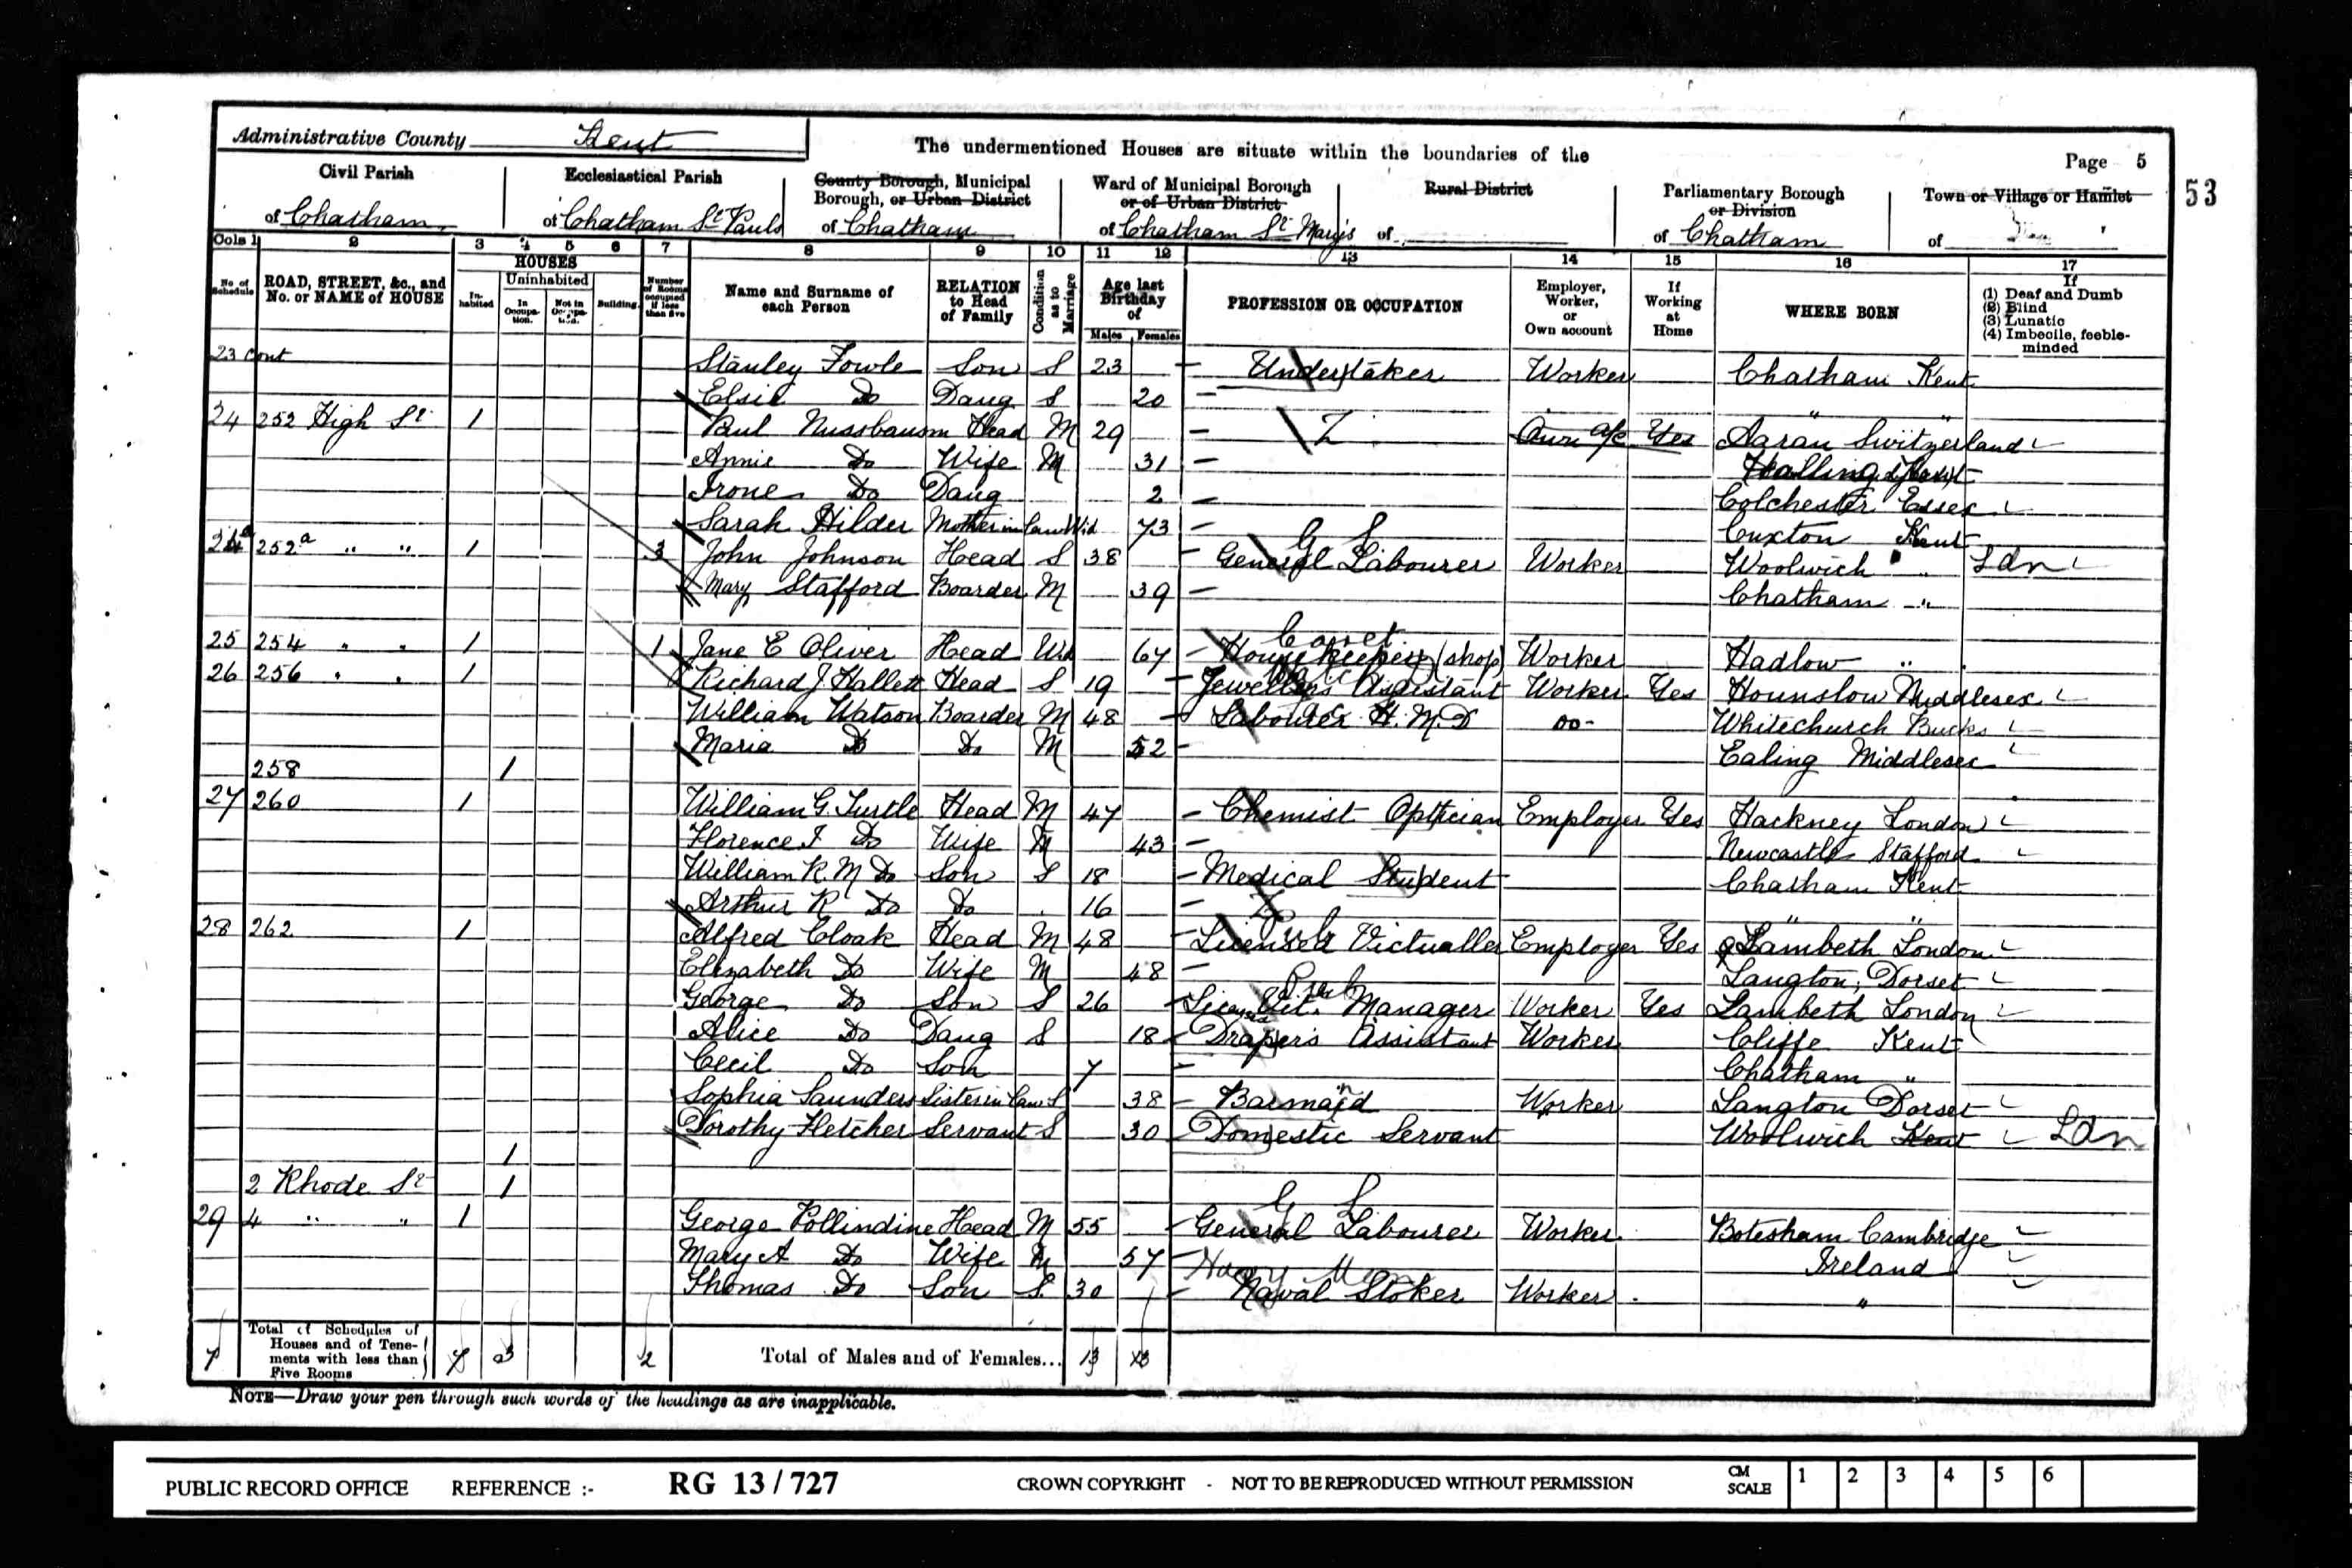 Administrative County Kent
The undermentioned Houses are situate within the boundaries of the
Page 5
53
Civil Parish
of Chatham
Ecclesiastical Parish
of Chatham St Pauls
County Borough, Municipal Borough, or Urban District
of Chatham
Ward of Municipal Borough or of Urban District
of Chatham St Mary's
Rural District
of
Parliamentary Borough or Division
of Chatham
Town or Village or Hamlet
of
Cols 1 2 3 4 5 6 7 8 9 10 11 12 13 14 15 16 17
No. of Schedule
ROAD, STREET, &c., and No. or NAME of HOUSE
HOUSES
Inhabited
Uninhabited
In Occupation.
Not in Occupation.
Building.
Number of Rooms occupied if less than five
Name and Surname of each Person
RELATION to Head of Family
Condition as to Marriage
Age last Birthday of
Males Females
PROFESSION OR OCCUPATION
Employer, Worker, or Own account
If Working at Home
WHERE BORN
If
(1) Deaf and Dumb
(2) Blind
(3) Lunatic
(4) Imbecile, feeble-minded
23 cont Stanley Fowle Son S 23 – Undertaker Worker Chatham Kent
Elsie Do Daug S 20 – " "
24 252 High St 1 Paul Nussbaum Head M 29 – Z Own a/c Yes Aarau Switzerland
Annie Do Wife M 31 – Halling Kent
Irone Do Daug 2 – Colchester Essex
Sarah Hilder Mother in law Wid 73 – Cuxton Kent
24a 252a " " 1 3 John Johnson Head S 38 – G L General Labourer Worker Woolwich " Ldn
Mary Stafford Boarder M 39 – Chatham "
25 254 " " 1 1 Jane E Oliver Head Wid 67 – Housekeeper (shop) Worker Hadlow "
26 256 " " 1 Richard J Hallett Head S 19 – Jewellers Assistant Worker Yes Hounslow Middlesex
William Watson Boarder M 48 – Labourer H.M.D do Whitechurch Bucks
Maria Do Do M 52 – Ealing Middlesex
258 1
27 260 1 William G. Turtle Head M 47 – Chemist Optician Employer Yes Hackney London
Florence I Do Wife M 43 – Newcastle Stafford
William R. M Do Son S 18 – Medical Student Chatham Kent
Arthur R Do Do 16 – Z " "
28 262 1 Alfred Cloak Head M 48 – Pub Licensed Victualler Employer Yes Lambeth London
Elizabeth Do Wife M 48 – Langton, Dorset
George Do Son S 26 – Pub Licensed Vit. Manager Worker Yes Lambeth London
Alice Do Daug S 18 – Draper's Assistant Worker Cliffe Kent
Cecil Do Son 7 – Chatham "
Sophia Saunders Sister in law S 38 – Barmaid Worker Langton Dorset
Dorothy Fletcher Servant S 30 – Domestic Servant Woolwich Kent Ldn
1
2 Rhode St 1
29 4 " " 1 George Pollindine Head M 55 – G L General Labourer Worker Botesham Cambridge
Mary A Do Wife M 57 – Ireland
Thomas Do Son S 30 – Naval Stoker Worker "
7
Total of Schedules of Houses and of Tenements with less than Five Rooms
3 2
Total of Males and of Females...
13 13
NOTE—Draw your pen through such words of the headings as are inapplicable.
PUBLIC RECORD OFFICE REFERENCE :- RG 13/727 CROWN COPYRIGHT - NOT TO BE REPRODUCED WITHOUT PERMISSION CM SCALE 1 2 3 4 5 6